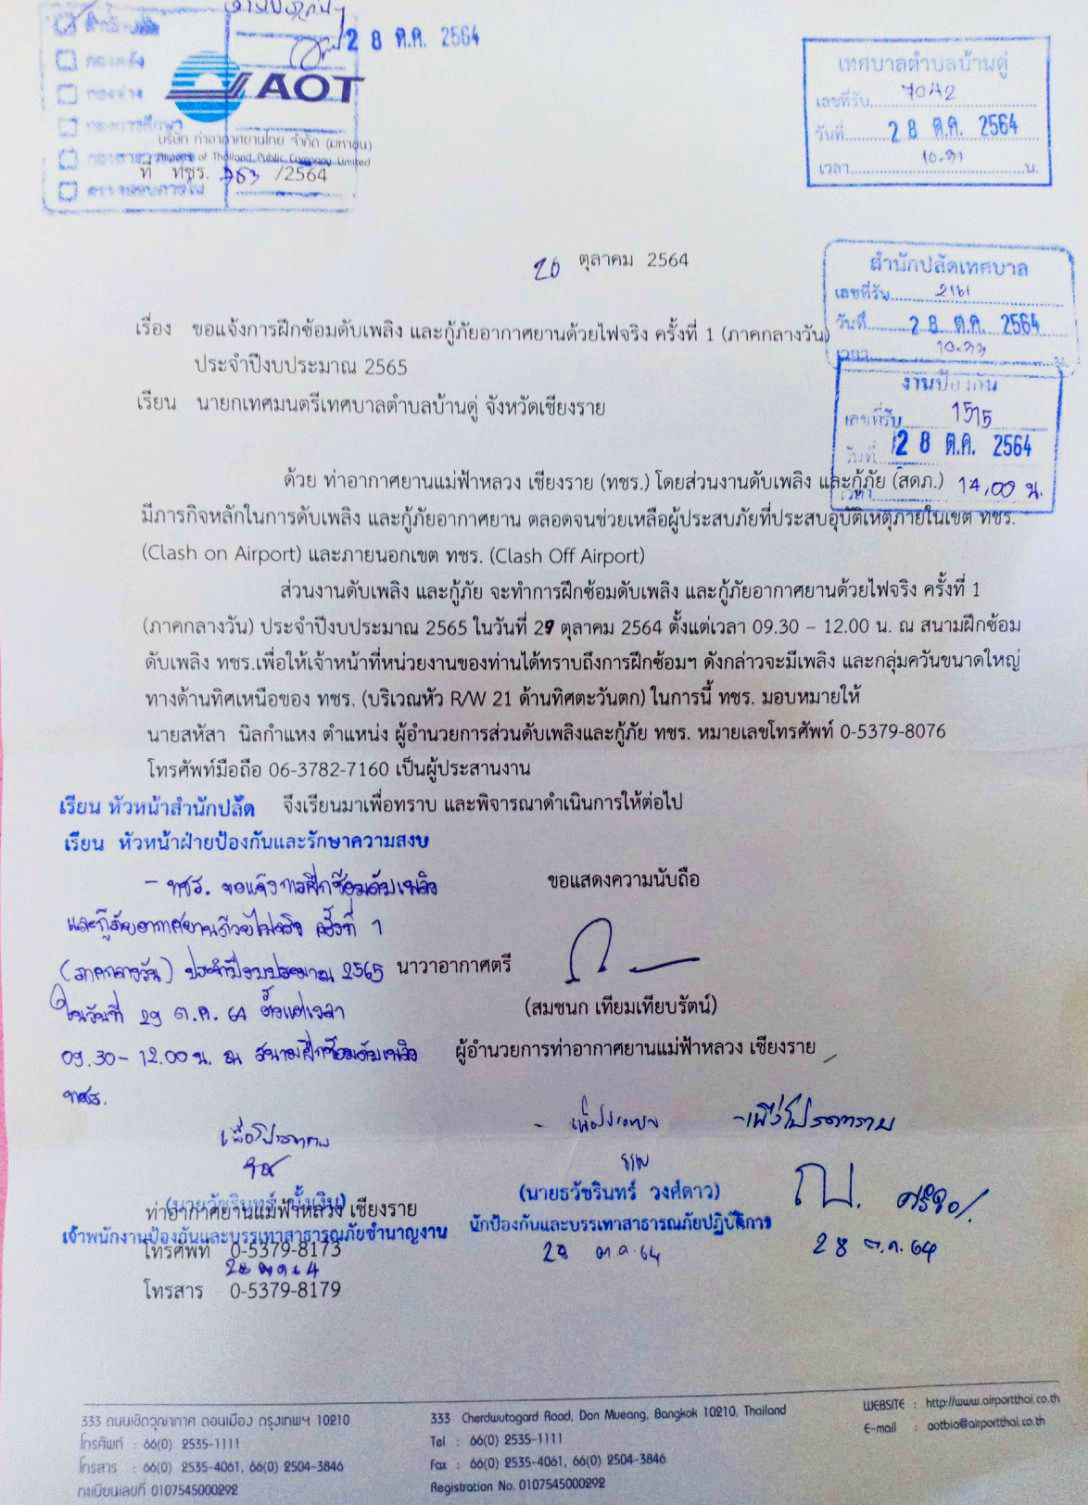 28 ต.ค. 2564
สำนักปลัด
กองคลัง
กองช่าง
กองการศึกษา
ตรวจสอบภายใน
AOT
บริษัท ท่าอากาศยานไทย จำกัด (มหาชน)
Airports of Thailand Public Company Limited
ที่ ทชร. /2564
เทศบาลตำบลบ้านดู่
เลขที่รับ 7042
วันที่ 28 ต.ค. 2564
เวลา 10.31 น.
26 ตุลาคม 2564
สำนักปลัดเทศบาล
เลขที่รับ 2161
วันที่ 28 ต.ค. 2564
เวลา 10.33
งานป้องกัน
เลขที่รับ 1515
วันที่ 28 ต.ค. 2564
เวลา 14.00 น.
เรื่อง ขอแจ้งการฝึกซ้อมดับเพลิง และกู้ภัยอากาศยานด้วยไฟจริง ครั้งที่ 1 (ภาคกลางวัน)
ประจำปีงบประมาณ 2565
เรียน นายกเทศมนตรีเทศบาลตำบลบ้านดู่ จังหวัดเชียงราย
ด้วย ท่าอากาศยานแม่ฟ้าหลวง เชียงราย (ทชร.) โดยส่วนงานดับเพลิง และกู้ภัย (สดภ.)
มีภารกิจหลักในการดับเพลิง และกู้ภัยอากาศยาน ตลอดจนช่วยเหลือผู้ประสบภัยที่ประสบอุบัติเหตุภายในเขต ทชร.
(Clash on Airport) และภายนอกเขต ทชร. (Clash Off Airport)
ส่วนงานดับเพลิง และกู้ภัย จะทำการฝึกซ้อมดับเพลิง และกู้ภัยอากาศยานด้วยไฟจริง ครั้งที่ 1
(ภาคกลางวัน) ประจำปีงบประมาณ 2565 ในวันที่ 29 ตุลาคม 2564 ตั้งแต่เวลา 09.30 – 12.00 น. ณ สนามฝึกซ้อม
ดับเพลิง ทชร.เพื่อให้เจ้าหน้าที่หน่วยงานของท่านได้ทราบถึงการฝึกซ้อมฯ ดังกล่าวจะมีเพลิง และกลุ่มควันขนาดใหญ่
ทางด้านทิศเหนือของ ทชร. (บริเวณหัว R/W 21 ด้านทิศตะวันตก) ในการนี้ ทชร. มอบหมายให้
นายสหัสา นิลกำแหง ตำแหน่ง ผู้อำนวยการส่วนดับเพลิงและกู้ภัย ทชร. หมายเลขโทรศัพท์ 0-5379-8076
โทรศัพท์มือถือ 06-3782-7160 เป็นผู้ประสานงาน
จึงเรียนมาเพื่อทราบ และพิจารณาดำเนินการให้ต่อไป
เรียน หัวหน้าสำนักปลัด
เรียน หัวหน้าฝ่ายป้องกันและรักษาความสงบ
- ทชร. ขอแจ้งการฝึกซ้อมดับเพลิง
และกู้ภัยอากาศยานด้วยไฟจริง ครั้งที่ 1
(ภาคกลางวัน) ประจำปีงบประมาณ 2565
ในวันที่ 29 ต.ค. 64 ตั้งแต่เวลา
09.30 - 12.00 น. ณ สนามฝึกซ้อมดับเพลิง
ทชร.
ขอแสดงความนับถือ
นาวาอากาศตรี
(สมชนก เทียมเทียบรัตน์)
ผู้อำนวยการท่าอากาศยานแม่ฟ้าหลวง เชียงราย
เพื่อโปรดทราบ
เจ้าพนักงานป้องกันและบรรเทาสาธารณภัยชำนาญงาน
28 ต.ค. 64
(นายธวัชรินทร์ วงศ์ดาว)
นักป้องกันและบรรเทาสาธารณภัยปฏิบัติการ
28 ต.ค. 64
- เพื่อโปรดทราบ
28 ต.ค. 64
ท่าอากาศยานแม่ฟ้าหลวง เชียงราย
โทรศัพท์ 0-5379-8173
โทรสาร 0-5379-8179
333 ถนนเชิดวุฒากาศ ดอนเมือง กรุงเทพฯ 10210
โทรศัพท์ : 66(0) 2535-1111
โทรสาร : 66(0) 2535-4061, 66(0) 2504-3846
ทะเบียนเลขที่ 0107545000292
333 Cherdwutagard Road, Don Mueang, Bangkok 10210, Thailand
Tel : 66(0) 2535-1111
Fax : 66(0) 2535-4061, 66(0) 2504-3846
Registration No. 0107545000292
WEBSITE : http://www.airportthai.co.th
E-mail : aotbia@airportthai.co.th